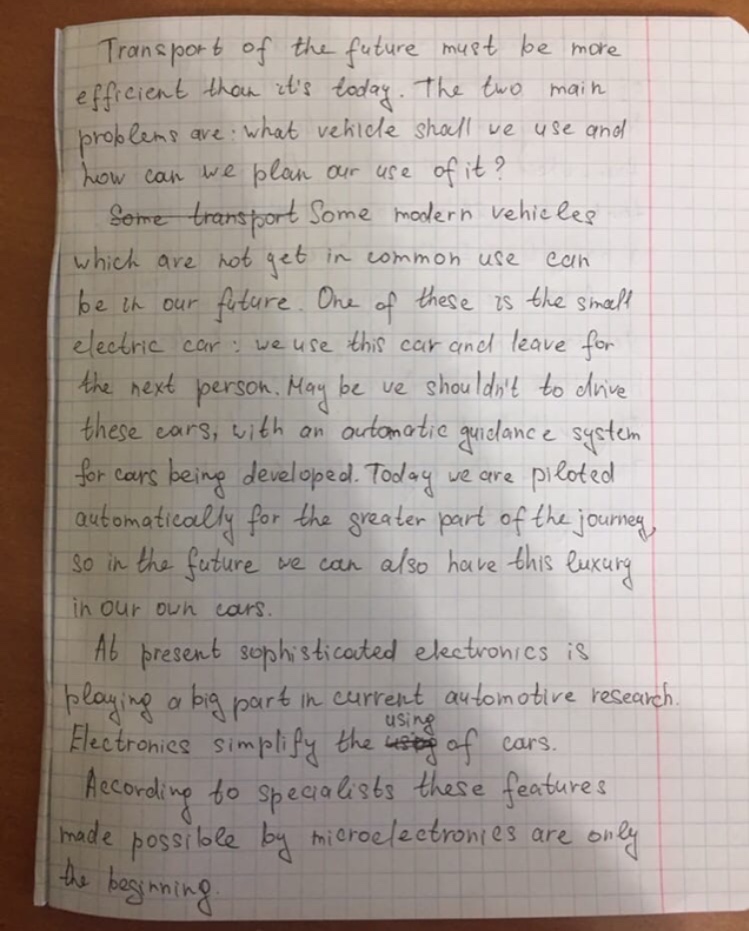 Transport of the future must be more
efficient than it's today. The two main
problems are: what vehicle shall we use and
how can we plan our use of it?
Some transport Some modern vehicles
which are not get in common use can
be in our future. One of these is the small
electric car: we use this car and leave for
the next person. May be we shouldn't to drive
these cars, with an automatic guidance system
for cars being developed. Today we are piloted
automatically for the greater part of the journey,
so in the future we can also have this luxury
in our own cars.
At present sophisticated electronics is
playing a big part in current automotive research.
using
Electronics simplify the using of cars.
According to specialists these features
made possible by microelectronics are only
the beginning.